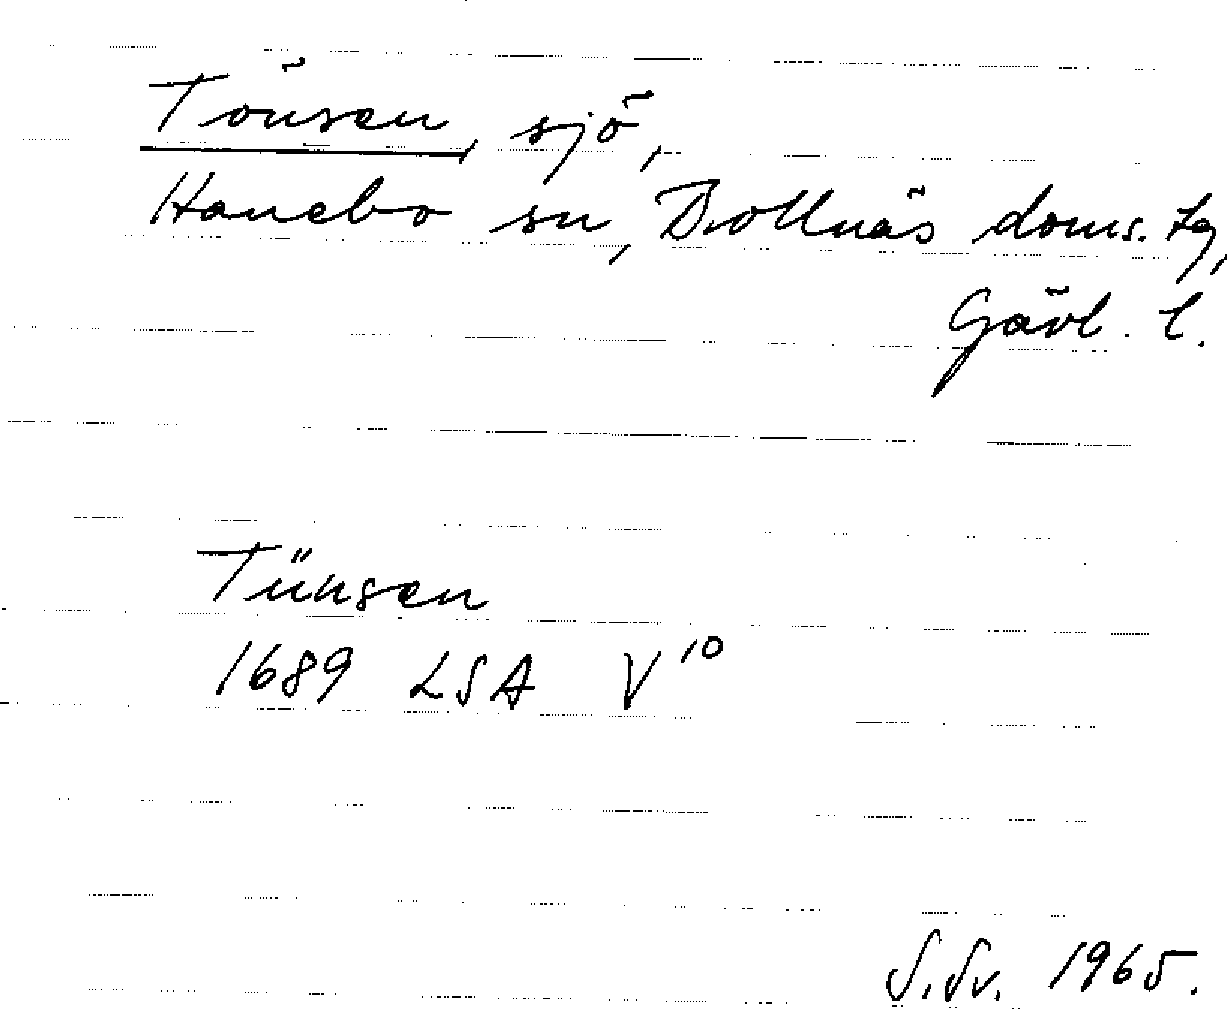 Tönsen, sjö,
Hanebo sn, Bollnäs doms. tg,
Gävl. l.
Tünsen
1689 LSA V¹⁰
S.Sv. 1965.